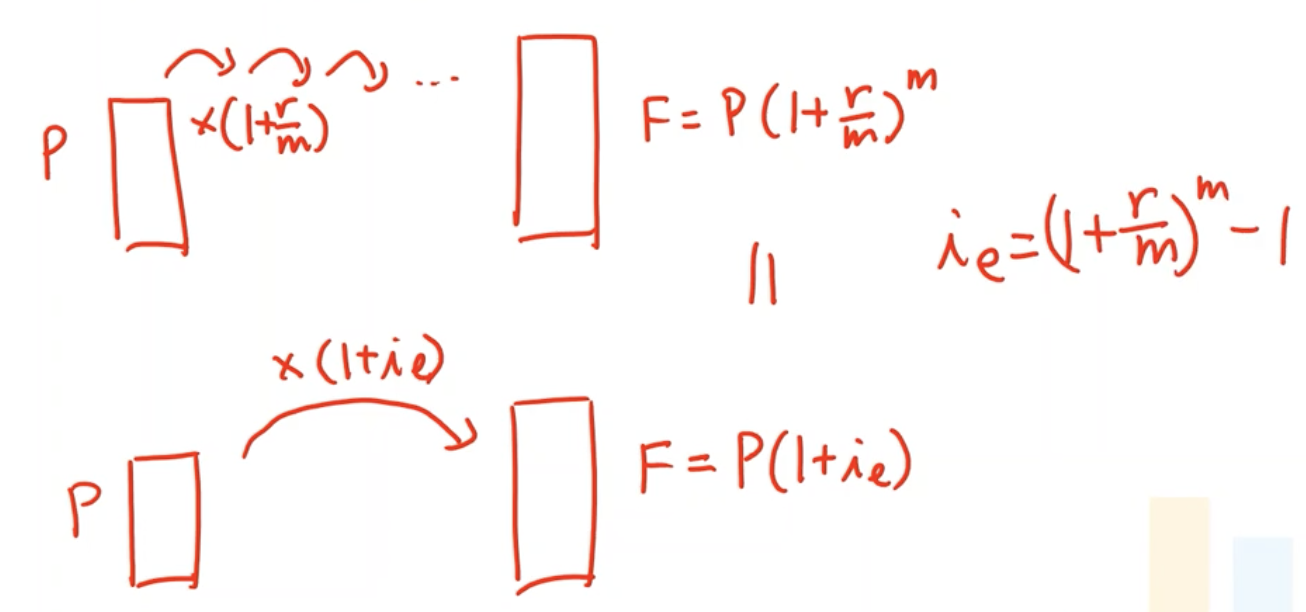 P ×(1+r/m) ... F = P(1+r/m)^m
i_e = (1+r/m)^m - 1
||
×(1+i_e)
P F = P(1+i_e)